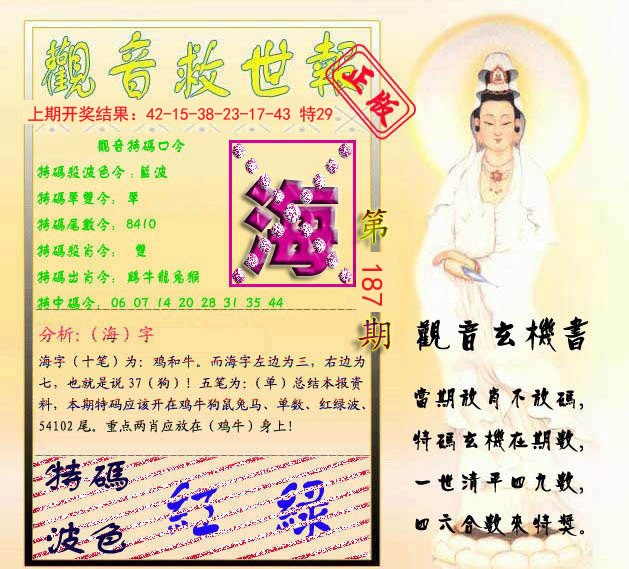 觀音救世報
正版
上期开奖结果：42-15-38-23-17-43 特29
觀音特碼口令
特碼殺波色令：藍波
特碼單雙令： 單
特碼尾數令： 8410
特碼殺肖令： 雙
特碼出肖令： 鷄牛龍兔猴
特中碼令： 06 07 14 20 28 31 35 44
海
第187期
分析：（海）字
海字（十笔）为：鸡和牛。而海字左边为三，右边为
七，也就是说 37（狗）！五笔为：（单）总结本报资
料，本期特码应该开在鸡牛狗鼠兔马、单数、红绿波、
54102 尾。重点两肖应放在（鸡牛）身上！
特碼
波色
紅 綠
觀音玄機書
當期放肖不放碼，
特碼玄機在期數，
一世清平四九數，
四六合數來特獎。